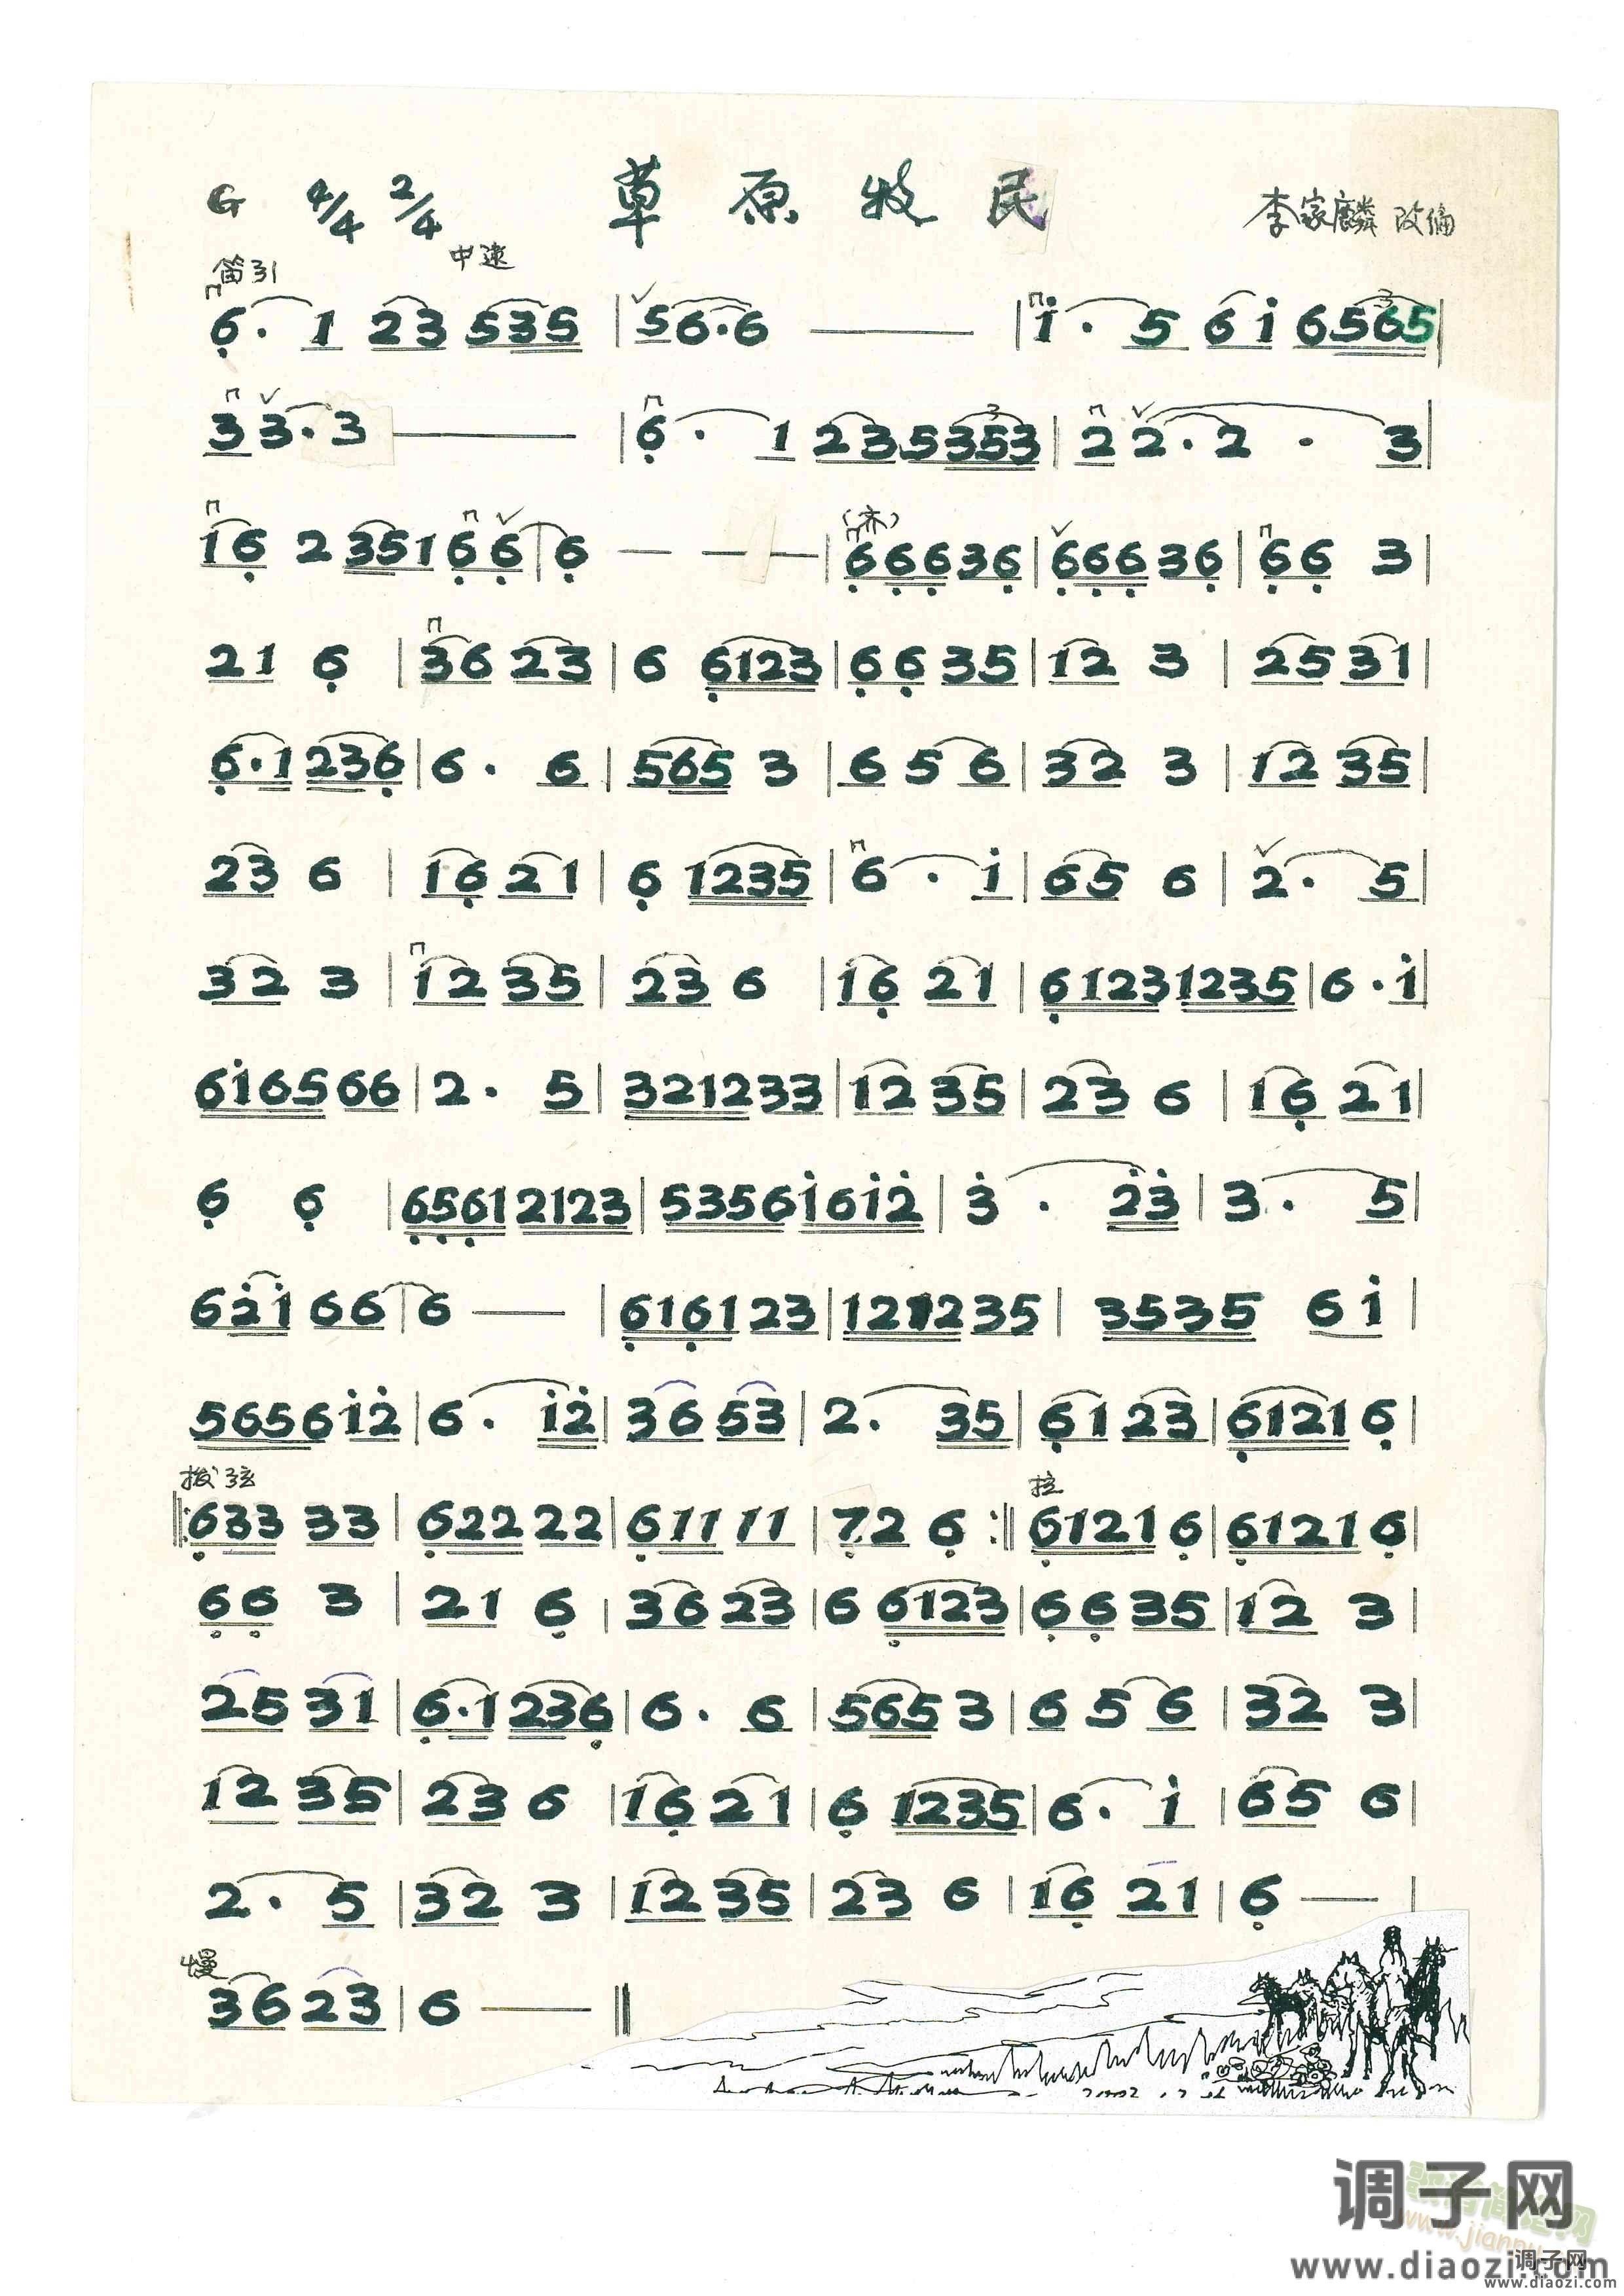 G 4/4 2/4 草原牧民 李家麟 改编
笛引 中速
6· 1 23 535 | 56·6 — | i· 5 6i 6565 |
3 3·3 — | 6· 1 23 5353 | 2 2·2 · 3 |
16 2 351 66 | 6 — — — | 666 36 | 666 36 | 66 3 |
(齐)
21 6 | 36 23 | 6 6123 | 66 35 | 12 3 | 25 31 |
6·1 236 | 6· 6 | 565 3 | 6 5 6 | 32 3 | 12 35 |
23 6 | 16 21 | 6 1235 | 6· i | 65 6 | 2· 5 |
32 3 | 12 35 | 23 6 | 16 21 | 6123 1235 | 6·i |
6i65 66 | 2· 5 | 3212 33 | 12 35 | 23 6 | 16 21 |
6 6 | 6561 2123 | 5356 i6i2 | 3· 23 | 3· 5 |
62i 66 | 6 — | 6161 23 | 1212 35 | 3535 6i |
5656 i2 | 6· i2 | 36 53 | 2· 35 | 61 23 | 6121 6 |
拨弦 拉
‖: 633 33 | 622 22 | 611 11 | 72 6 :‖ 6121 6 | 6121 6 |
66 3 | 21 6 | 36 23 | 6 6123 | 66 35 | 12 3 |
25 31 | 6·1 236 | 6· 6 | 565 3 | 6 5 6 | 32 3 |
12 35 | 23 6 | 16 21 | 6 1235 | 6· i | 65 6 |
2· 5 | 32 3 | 12 35 | 23 6 | 16 21 | 6 — |
慢
36 23 | 6 — ‖
调子网
www.diaozi.com
调子网
www.diaozi.com